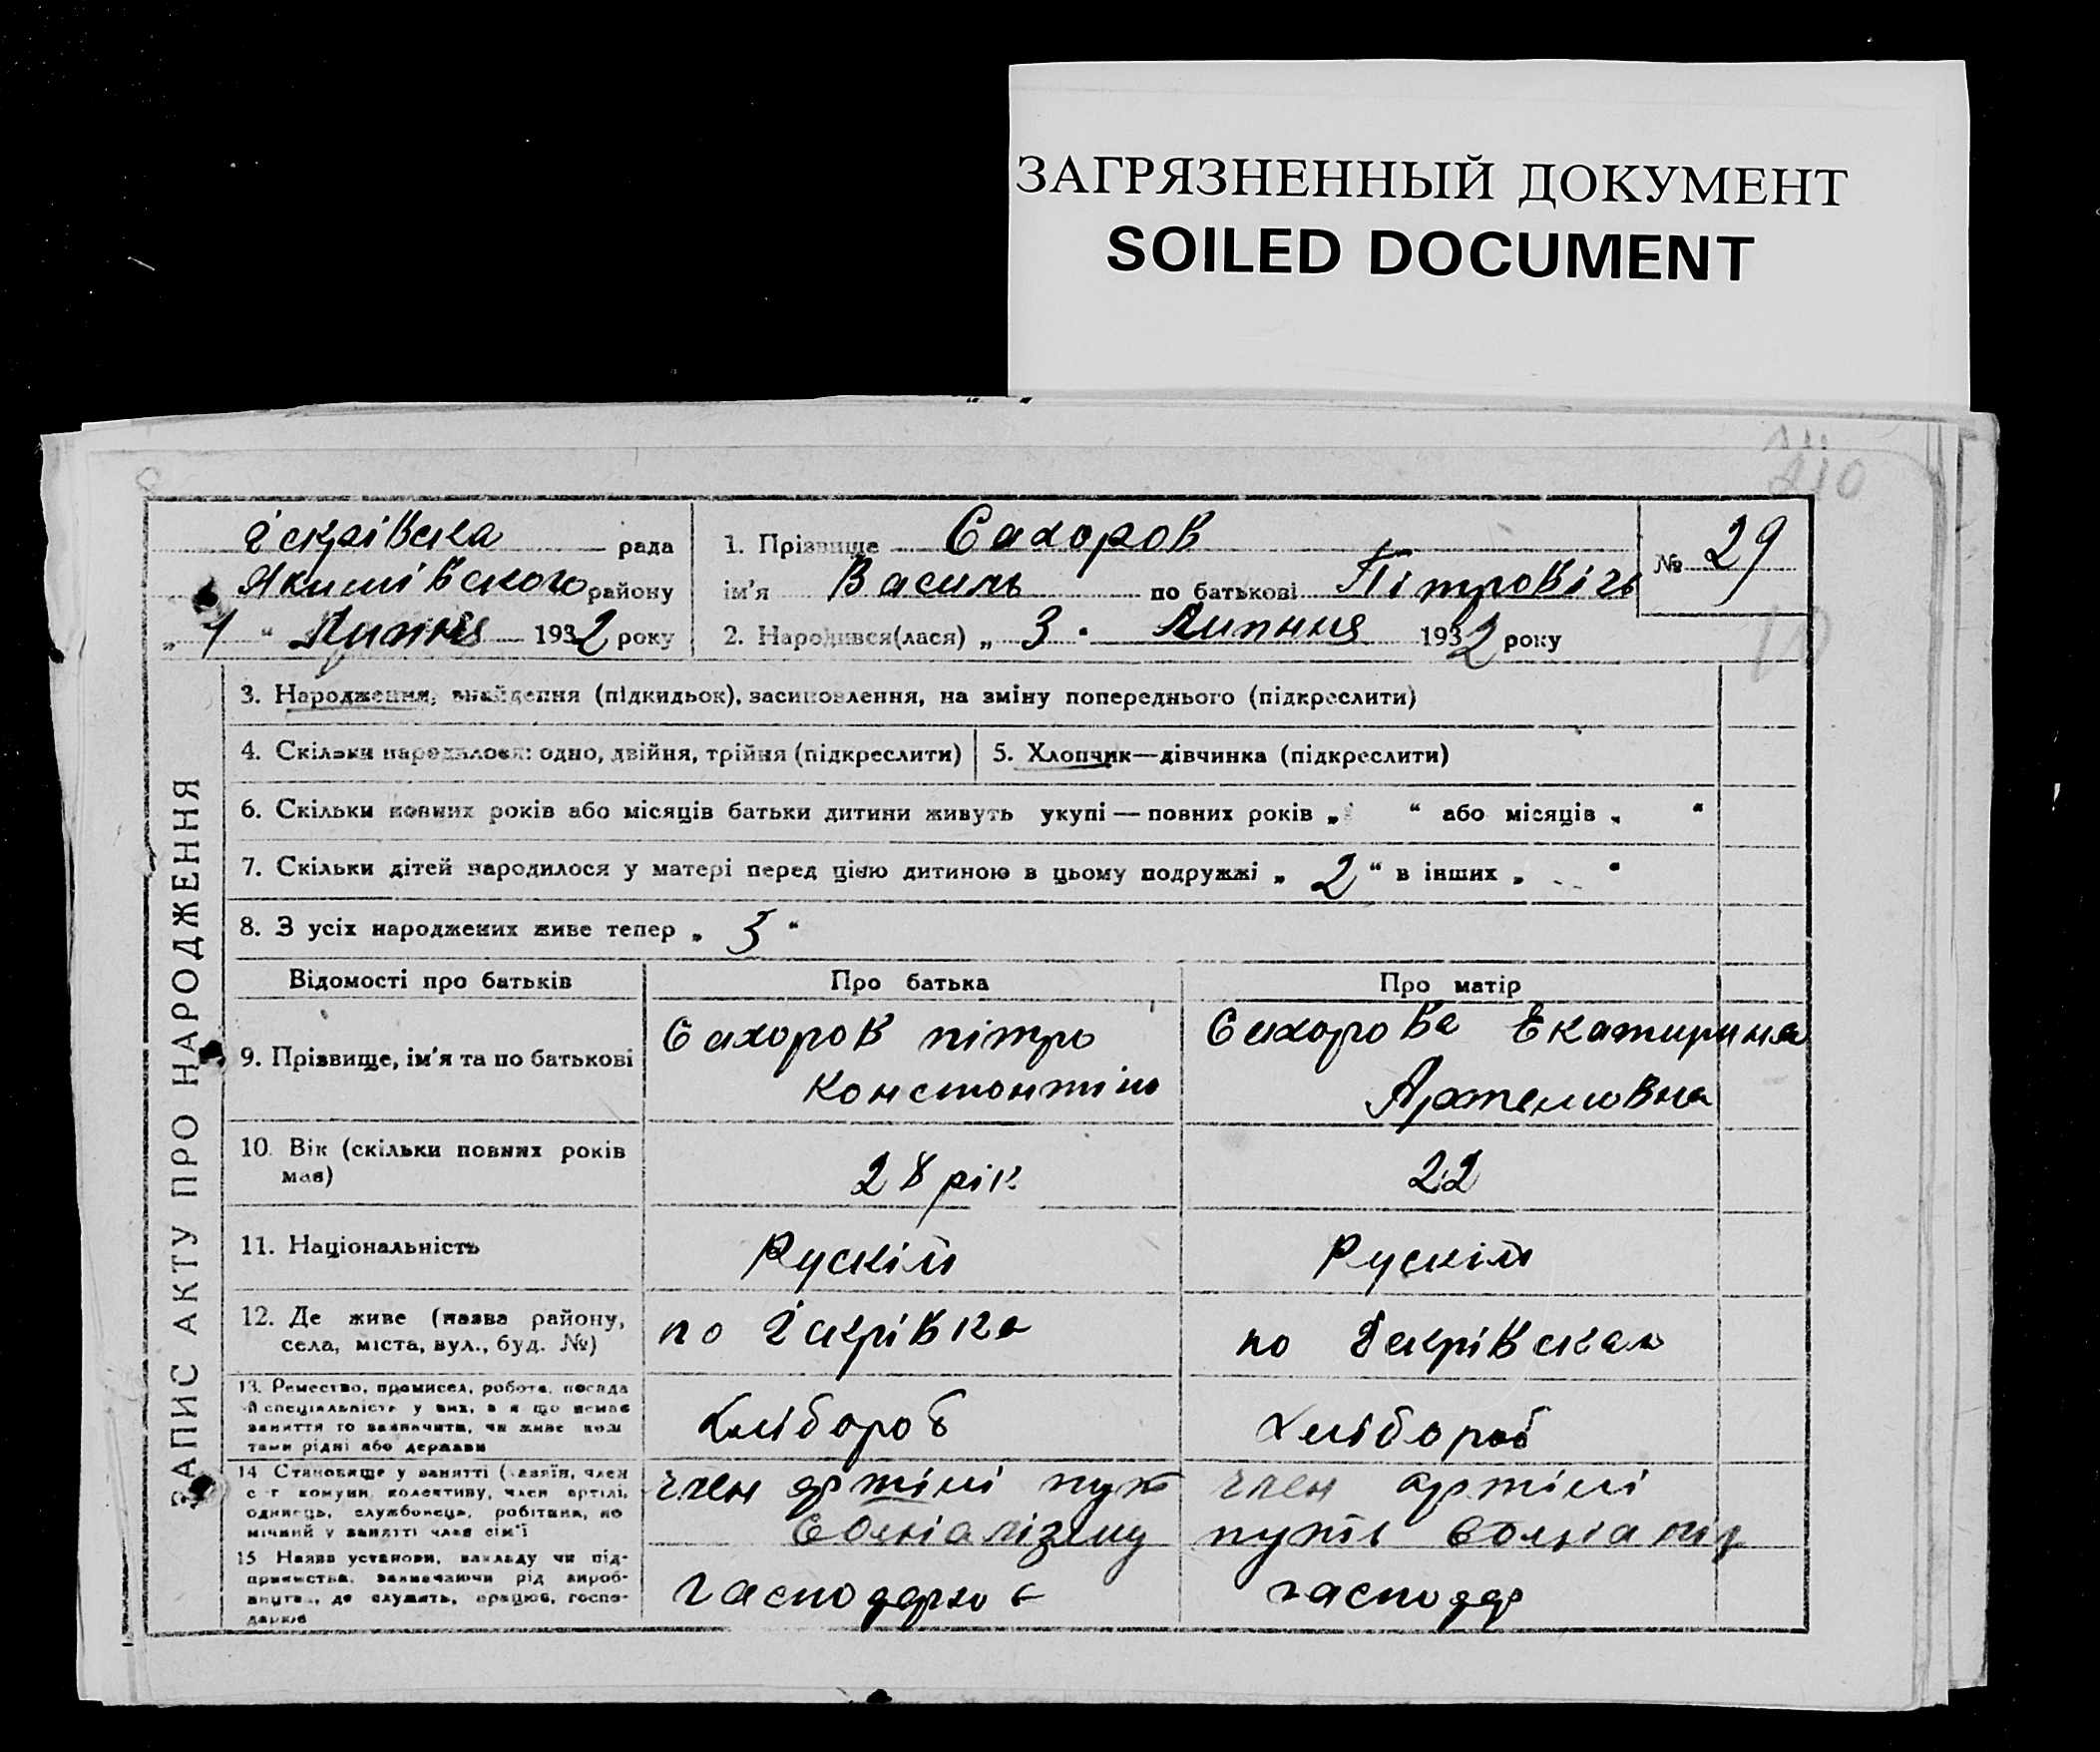 ЗАГРЯЗНЕННЫЙ ДОКУМЕНТ
SOILED DOCUMENT
210
Іскрівска рада
Якимівского району
„ 4 “ Липня 1932 року
1. Прізвище Сахоров
ім'я Василь по батькові Пітровічь
2. Народився(лася) „ 3 “ Липння 1932 року
№ 29
ЗАПИС АКТУ ПРО НАРОДЖЕННЯ
3. Народження, знайдення (підкидьок), засиновлення, на зміну попереднього (підкреслити)
4. Скільки народилося: одно, двійня, трійня (підкреслити)
5. Хлопчик—дівчинка (підкреслити)
6. Скільки повних років або місяців батьки дитини живуть укупі — повних років „ “ або місяців „ “
7. Скільки дітей народилося у матері перед цією дитиною в цьому подружжі „ 2 “ в інших „ “
8. З усіх народжених живе тепер „ 3 “
Відомості про батьків
Про батька
Про матір
9. Прізвище, ім'я та по батькові
Сахоров пітро
Констонтін
Сахорова Екатирина
Артемовна
10. Вік (скільки повних років
має)
28 рік
22
11. Національність
Рускій
Рускій
12. Де живе (назва району,
села, міста, вул., буд. №)
по Іскрівка
по Іскрівская
13. Ремество, промисел, робота, посада
й спеціяльність у них, а я що немає
заняття то зазначити, чи живе кош
тами рідні або держави
хлібороб
хлібороб
14 Становище у занятті (хазяїн, член
с-г комуни, колективу, член артілі,
одинець, службовець, робітник, по
мічний у занятті член сім'ї
член артілі пут
Соціалізму
член артілі
путь Соціаліз
15 Назва установи, закладу чи під-
приємства, зазначаючи рід вироб-
ництва, де служить, працює, госпо-
дарює
гасподарює
гасподар